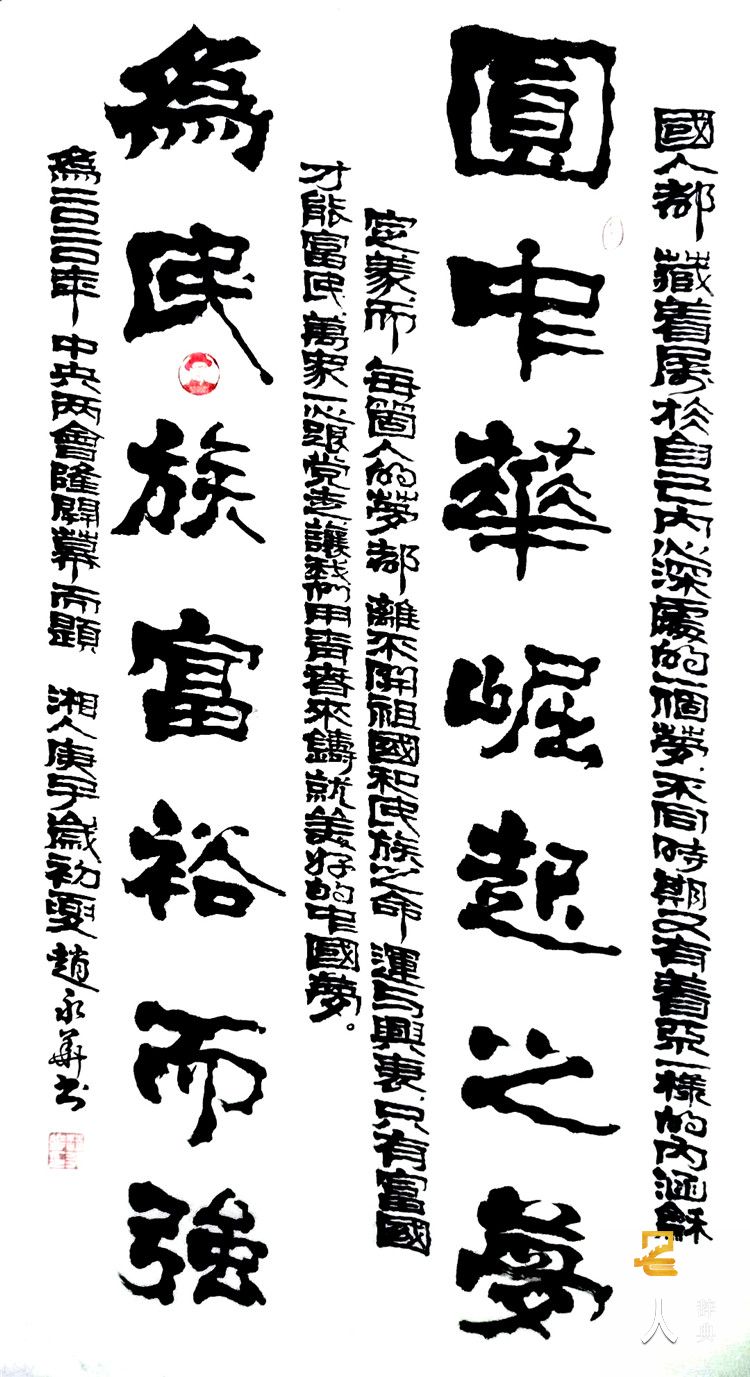 國人都藏着属於自己内心深處的一個夢.不同时期又有着不一樣的内涵龢
圓中華崛起之夢
定義而每箇人的夢都離不開祖國和民族之命運与興衰.只有富國
才能富民.萬家一心跟党走讓我們用青春來鑄就美好的中國夢。
為民族富裕而強
為二〇二〇年中央两會隆開幕而題 湘人庚子歲初夏趙永華书
人
辞典